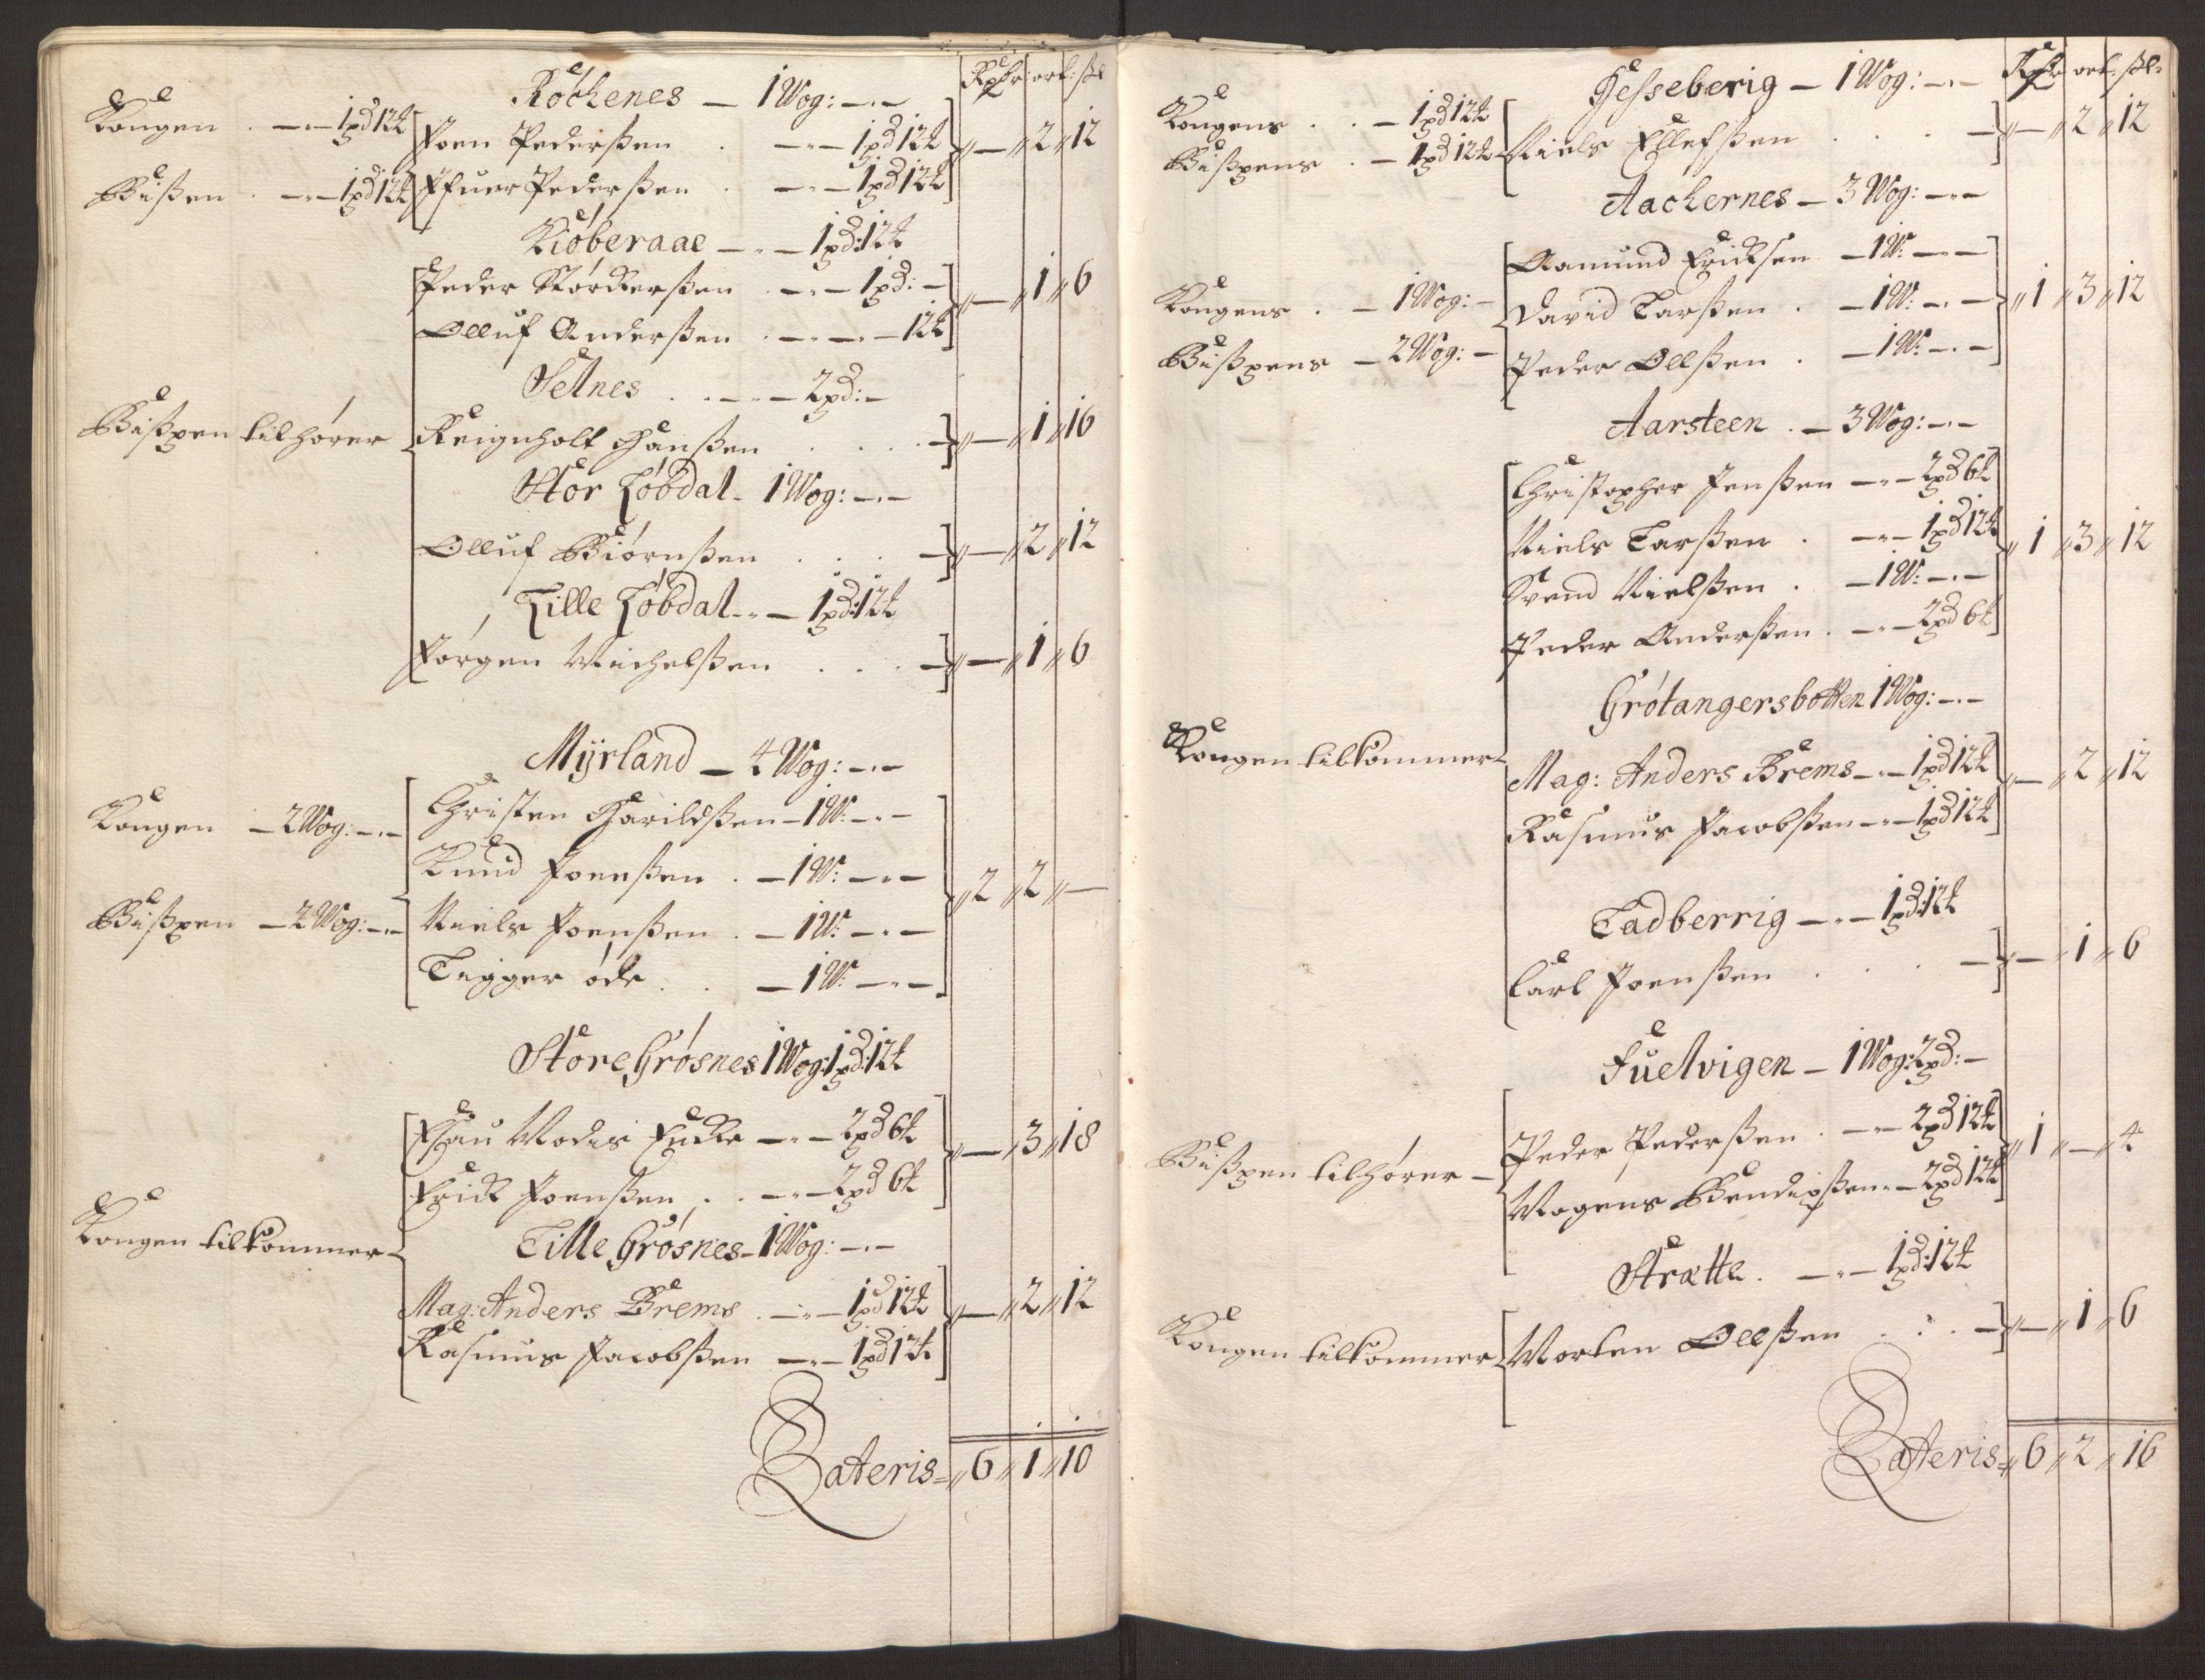 Rdr ort: ßl
Röchenes — 1 Wog: —.—
Kongen . —.—1pd12℔ Joen Pederßen . —.—1pd12℔ „—„2„12
Bißen . —.—1pd12℔ Ifuer Pederßen . —.—1pd12℔
Kiöberaae —.—1pd:12℔
Peder Störckerßen . —.—1pd:— „—„1„6
Olluf Anderßen . —.—.—12℔
Setnes . .—.—2pd:—
Bißpen tilhörer Reignholt Hanßen . . . .— „—„1„16
Stor Löbdal — 1 Wog: —.—
Olluf Biörnßen . . . — „—„2„12
Lille Löbdal —.—1pd:12℔
Jörgen Michelßen . . . — „—„1„6
Mÿrland — 4 Wog: —.—
Kongen —2 Wog: —.— Christen Harildßen —1W: —.—
Knud Joenßen . —1W: —.— „2„2„—
Bißpen —2 Wog: —.— Niels Joenßen . —1W: —.—
Ligger öde . . —1W: —.—
Store Grösnes 1 Wog: 1pd:12℔
Esau Modis Encke —.—2pd6℔ „—„3„18
Erick Joenßen . . —.—2pd6℔
Kongen tilkommer Lille Grösnes — 1 Wog: —.—
Mag: Anders Brems . —.—1pd12℔ „—„2„12
Rasmus Jacobßen —.—1pd12℔
Lateris= „6„1„10
Rdr ort: ßl:
Hesseberig — 1 Wog: —.—
Kongens . . —1pd12℔
Bißpens . —1pd12℔ Niels Ellefßen . . . . — „—„2„12
Aachernes — 3 Wog: —.—
Aamund Ericksen —1W: —.—
Kongens . —1 Wog: — David Larßen . —1W: —.— „1„3„12
Bißpens —2 Wog: — Peder Olßen . —1W: —.—
Aarsteen . — 3 Wog: —.—
Christopher Jenßen —.—2pd6℔
Niels Larßen . —.—1pd12℔ „1„3„12
Svend Nielßen . —1W: —.—
Peder Anderßen . —.—2pd6℔
Grötangersbotten 1 Wog: —.—
Kongen tilkommer Mag: Anders Brems —.—1pd12℔ „—„2„12
Rasmus Jacobßen —.—1pd12℔
Ladberrig —.—1pd:12℔
Carl Joenßen . . . — „—„1„6
Fuelvigen — 1 Wog: 2pd:—
Peder Pederßen . —.—2pd12℔ „1„—„4
Bißpen tilhörer — Mogens Bendixßen .—2pd12℔
Strætte . —.—1pd:12℔
Kongen tilkommer Morten Olßen . . . — „—„1„6
Lateris= „6„2„16